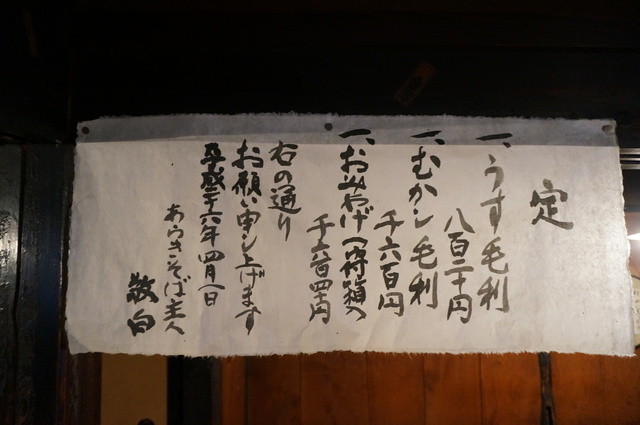 定
一、うす毛利
八百二十円
一、むかし毛利
千六百円
一、おみやげ一人前箱入
千六百四十円
右の通り
お願い申し上げます
平成二十六年四月一日
あらきそば主人
敬白